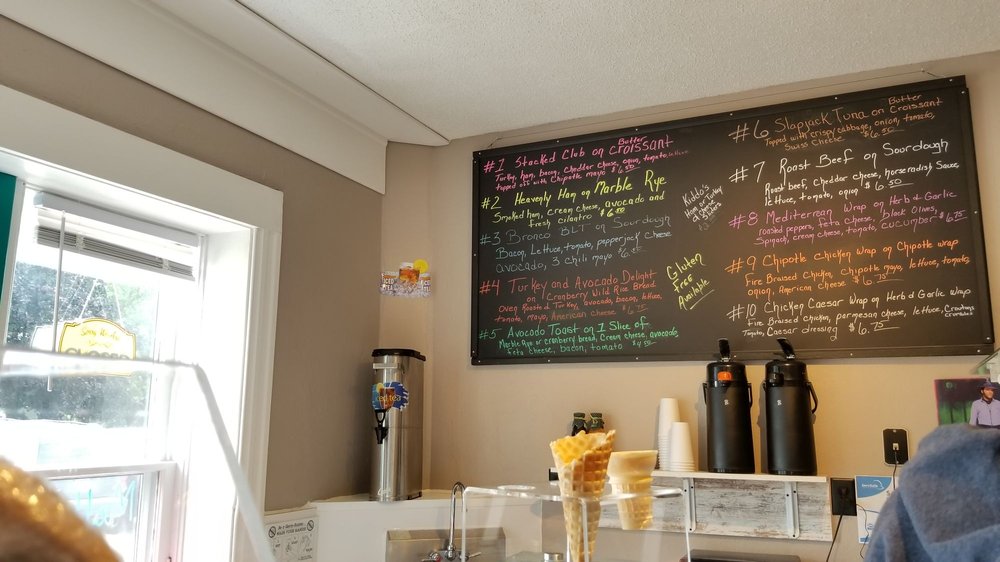 #1 Stacked Club on Croissant
Butter
Turkey, ham, bacon, Chedder cheese, onion, tomato, lettuce
topped off with Chipotle mayo $6.50
#2 Heavenly Ham on Marble Rye
Smoked ham, cream cheese, avocado and
fresh cilantro $6.50
#3 Bronco BLT on Sourdough
Bacon, Lettuce, tomato, pepperjack cheese
avocado, 3 chili mayo $6.50
#4 Turkey and Avocado Delight
on Cranberry Wild Rice Bread
Oven Roasted Turkey, avocado, bacon, lettuce,
tomato, mayo, American cheese
#5 Avocado Toast on 1 Slice of
Marble Rye or cranberry bread, Cream cheese, avocado,
feta cheese, bacon, tomato $4.50
Kiddo's
Ham or Turkey
Cheese
Sliders
Gluten
Free
Available
#6 Slapjack Tuna on Croissant
Butter
Topped with crispy cabbage, onion, tomato,
Swiss Cheese $6.50
#7 Roast Beef on Sourdough
Roast beef, cheddar cheese, horseradish Sauce,
tomato, onion $6.50
#8 Mediterrean Wrap on Herb & Garlic
roasted peppers, feta cheese, black olives,
Spinach, cream cheese, tomato, cucumber $6.75
#9 Chipotle chicken Wrap on Chipotle wrap
Fire Braised Chicken, Chipotle mayo, lettuce, tomato,
onion, American cheese $6.75
#10 Chicken Caesar Wrap on Herb & Garlic wrap
Fire Braised chicken, parmesan cheese, lettuce, Croutons
crumbled
Tomato, Caesar dressing $6.75
Sorry We're
CLOSED
iced tea